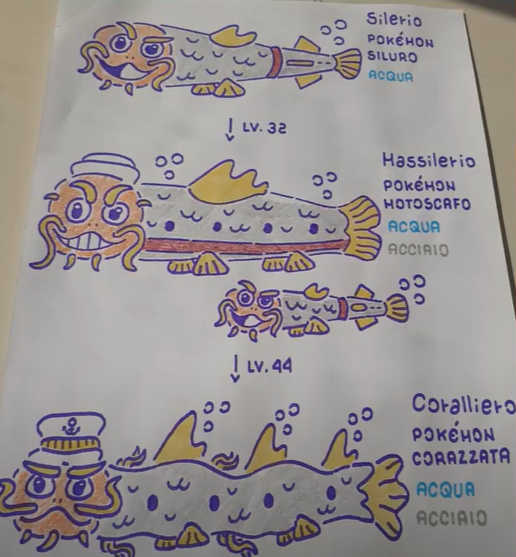 Silerio
POKÉMON
SILURO
ACQUA
LV. 32
Hassilerio
POKÉMON
MOTOSCAFO
ACQUA
ACCIAIO
LV. 44
Coralliero
POKÉMON
CORAZZATA
ACQUA
ACCIAIO